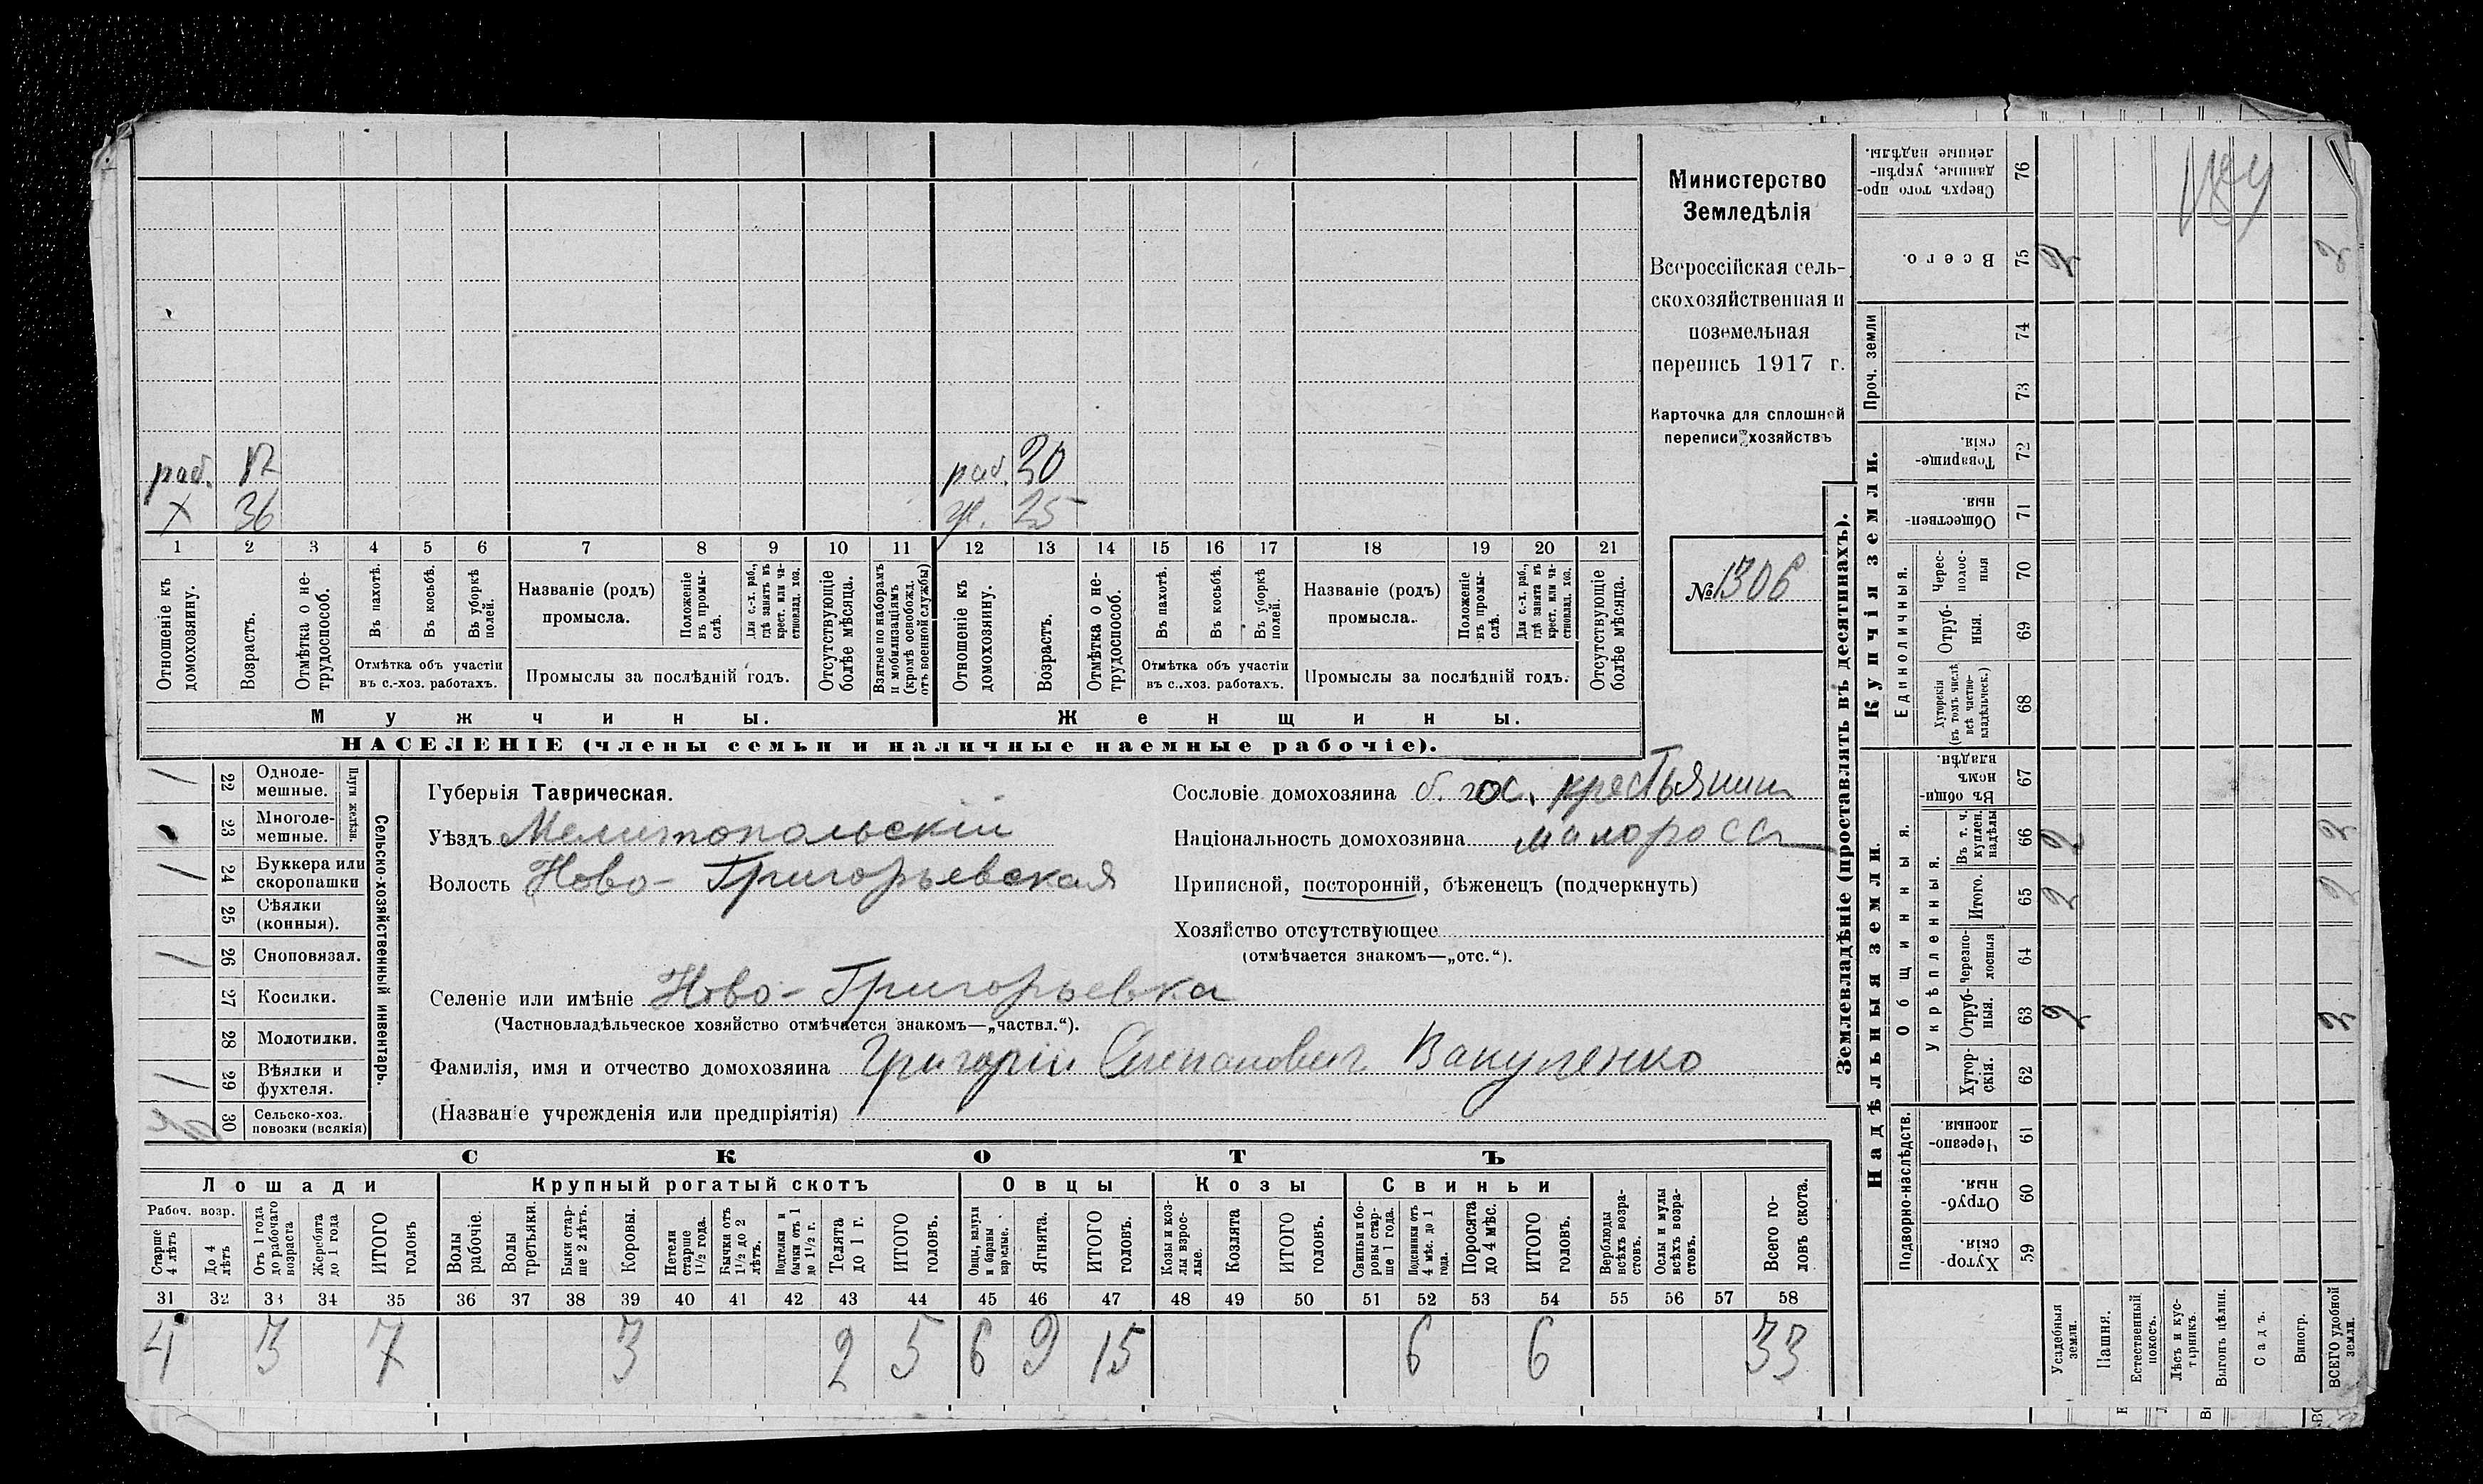 Министерство
Земледѣлія
Всероссійская сель-
скохозяйственная и
поземельная
перепись 1917 г.
Карточка для сплошной
переписи хозяйствъ
№ 1306
раб. 17 раб. 30
х 36 ж. 25
1 2 3 4 5 6 7 8 9 10 11 12 13 14 15 16 17 18 19 20 21
Отношеніе къ домохозяину.
Возрастъ.
Отмѣтка о не-трудоспособ.
Въ пахотѣ.
Въ косьбѣ.
Въ уборкѣ полей.
Отмѣтка объ участіи
въ с.-хоз. работахъ.
Названіе (родъ)
промысла.
Положеніе въ промы-слѣ.
Для с.-х. раб., гдѣ занятъ въ крест. или ча-стновлад. хоз.
Промыслы за послѣдній годъ.
Отсутствующіе болѣе мѣсяца.
Взятые по наборамъ и мобилизаціямъ (кромѣ освобожд. отъ военной службы)
Отношеніе къ домохозяину.
Возрастъ.
Отмѣтка о не-трудоспособ.
Въ пахотѣ.
Въ косьбѣ.
Въ уборкѣ полей.
Отмѣтка объ участіи
въ с.-хоз. работахъ.
Названіе (родъ)
промысла.
Положеніе въ промы-слѣ.
Для с.-х. раб., гдѣ занята въ крест. или ча-стновлад. хоз.
Промыслы за послѣдній годъ.
Отсутствующіе болѣе мѣсяца.
Мужчины. Женщины.
НАСЕЛЕНІЕ (члены семьи и наличные наемные рабочіе).
Сельско-хозяйственный инвентарь.
Плуги желѣзн.
22 Одноле-мешные. /
23 Многоле-мешные.
24 Буккера или скоропашки /
25 Сѣялки (конныя).
26 Сноповязал. /
27 Косилки.
28 Молотилки.
29 Вѣялки и фухтеля. /
30 Сельско-хоз. повозки (всякія)
Губернія Таврическая.
Уѣздъ Мелитопольскій
Волость Ново-Григорьевская
Сословіе домохозяина б. гос. крестьянин
Національность домохозяина малоросс
Приписной, посторонній, бѣженецъ (подчеркнуть)
Хозяйство отсутствующее
(отмѣчается знакомъ—„отс.“).
Селеніе или имѣніе Ново-Григорьевка
(Частновладѣльческое хозяйство отмѣчается знакомъ—„частвл.“).
Фамилія, имя и отчество домохозяина Григорій Степанович Вакуленко
(Названіе учрежденія или предпріятія)
СКОТЪ
Лошади Крупный рогатый скотъ Овцы Козы Свиньи
Рабоч. возр.
Старше 4 лѣтъ
До 4 лѣтъ
Отъ 1 года до рабочаго возраста
Жеребята до 1 года
ИТОГО головъ
Волы рабочіе.
Волы третьяки.
Быки стар-ше 2 лѣтъ.
Коровы.
Нетели старше 1½ года.
Бычки отъ 1½ до 2 лѣтъ.
Подтелки и бычки отъ 1 до 1½ г.
Телята до 1 г.
ИТОГО головъ.
Овцы, валухи и бараны взрослые.
Ягнята.
ИТОГО головъ.
Козы и коз-лы взрос-лые.
Козлята
ИТОГО головъ.
Свиньи и бо-ровы стар-ше 1 года.
Подсвинки отъ 4 мѣс. до 1 года.
Поросята до 4 мѣс.
ИТОГО головъ.
Верблюды всѣхъ возра-стовъ.
Ослы и мулы всѣхъ возра-стовъ.
Всего го-ловъ скота.
31 32 33 34 35 36 37 38 39 40 41 42 43 44 45 46 47 48 49 50 51 52 53 54 55 56 57 58
4 3 7 3 2 5 6 9 15 6 6 33
Землевладѣніе (проставлять въ десятинахъ).
Купчія земли.
Надѣльныя земли.
Сверхъ того про-данные, укрѣп-ленные надѣлы. 76
Всего. 75 2 2
Проч. земли 74
73
Товарище-скія. 72
Обществен-ныя. 71
Единоличныя.
Черес-полос-ныя 70
Отруб-ныя. 69
Хуторскія (въ томъ числѣ всѣ частно-владѣльческ.) 68
Общинныя.
Въ общин-номъ владѣн. 67
Укрѣпленныя.
Въ т. ч. куплен. надѣлы 66 2 2
Итого. 65 2 2
Черезпо-лосныя 64
Отруб-ныя. 63 2 2
Хутор-скія. 62
Подворно-наслѣдств.
Черезпо-лосныя. 61
Отруб-ныя. 60
Хутор-скія. 59
Усадебныя земли.
Пашня.
Естественный покосъ.
Лѣсъ и кус-тарникъ.
Выгонъ цѣлин.
Садъ.
Виногр.
ВСЕГО удобной земли.